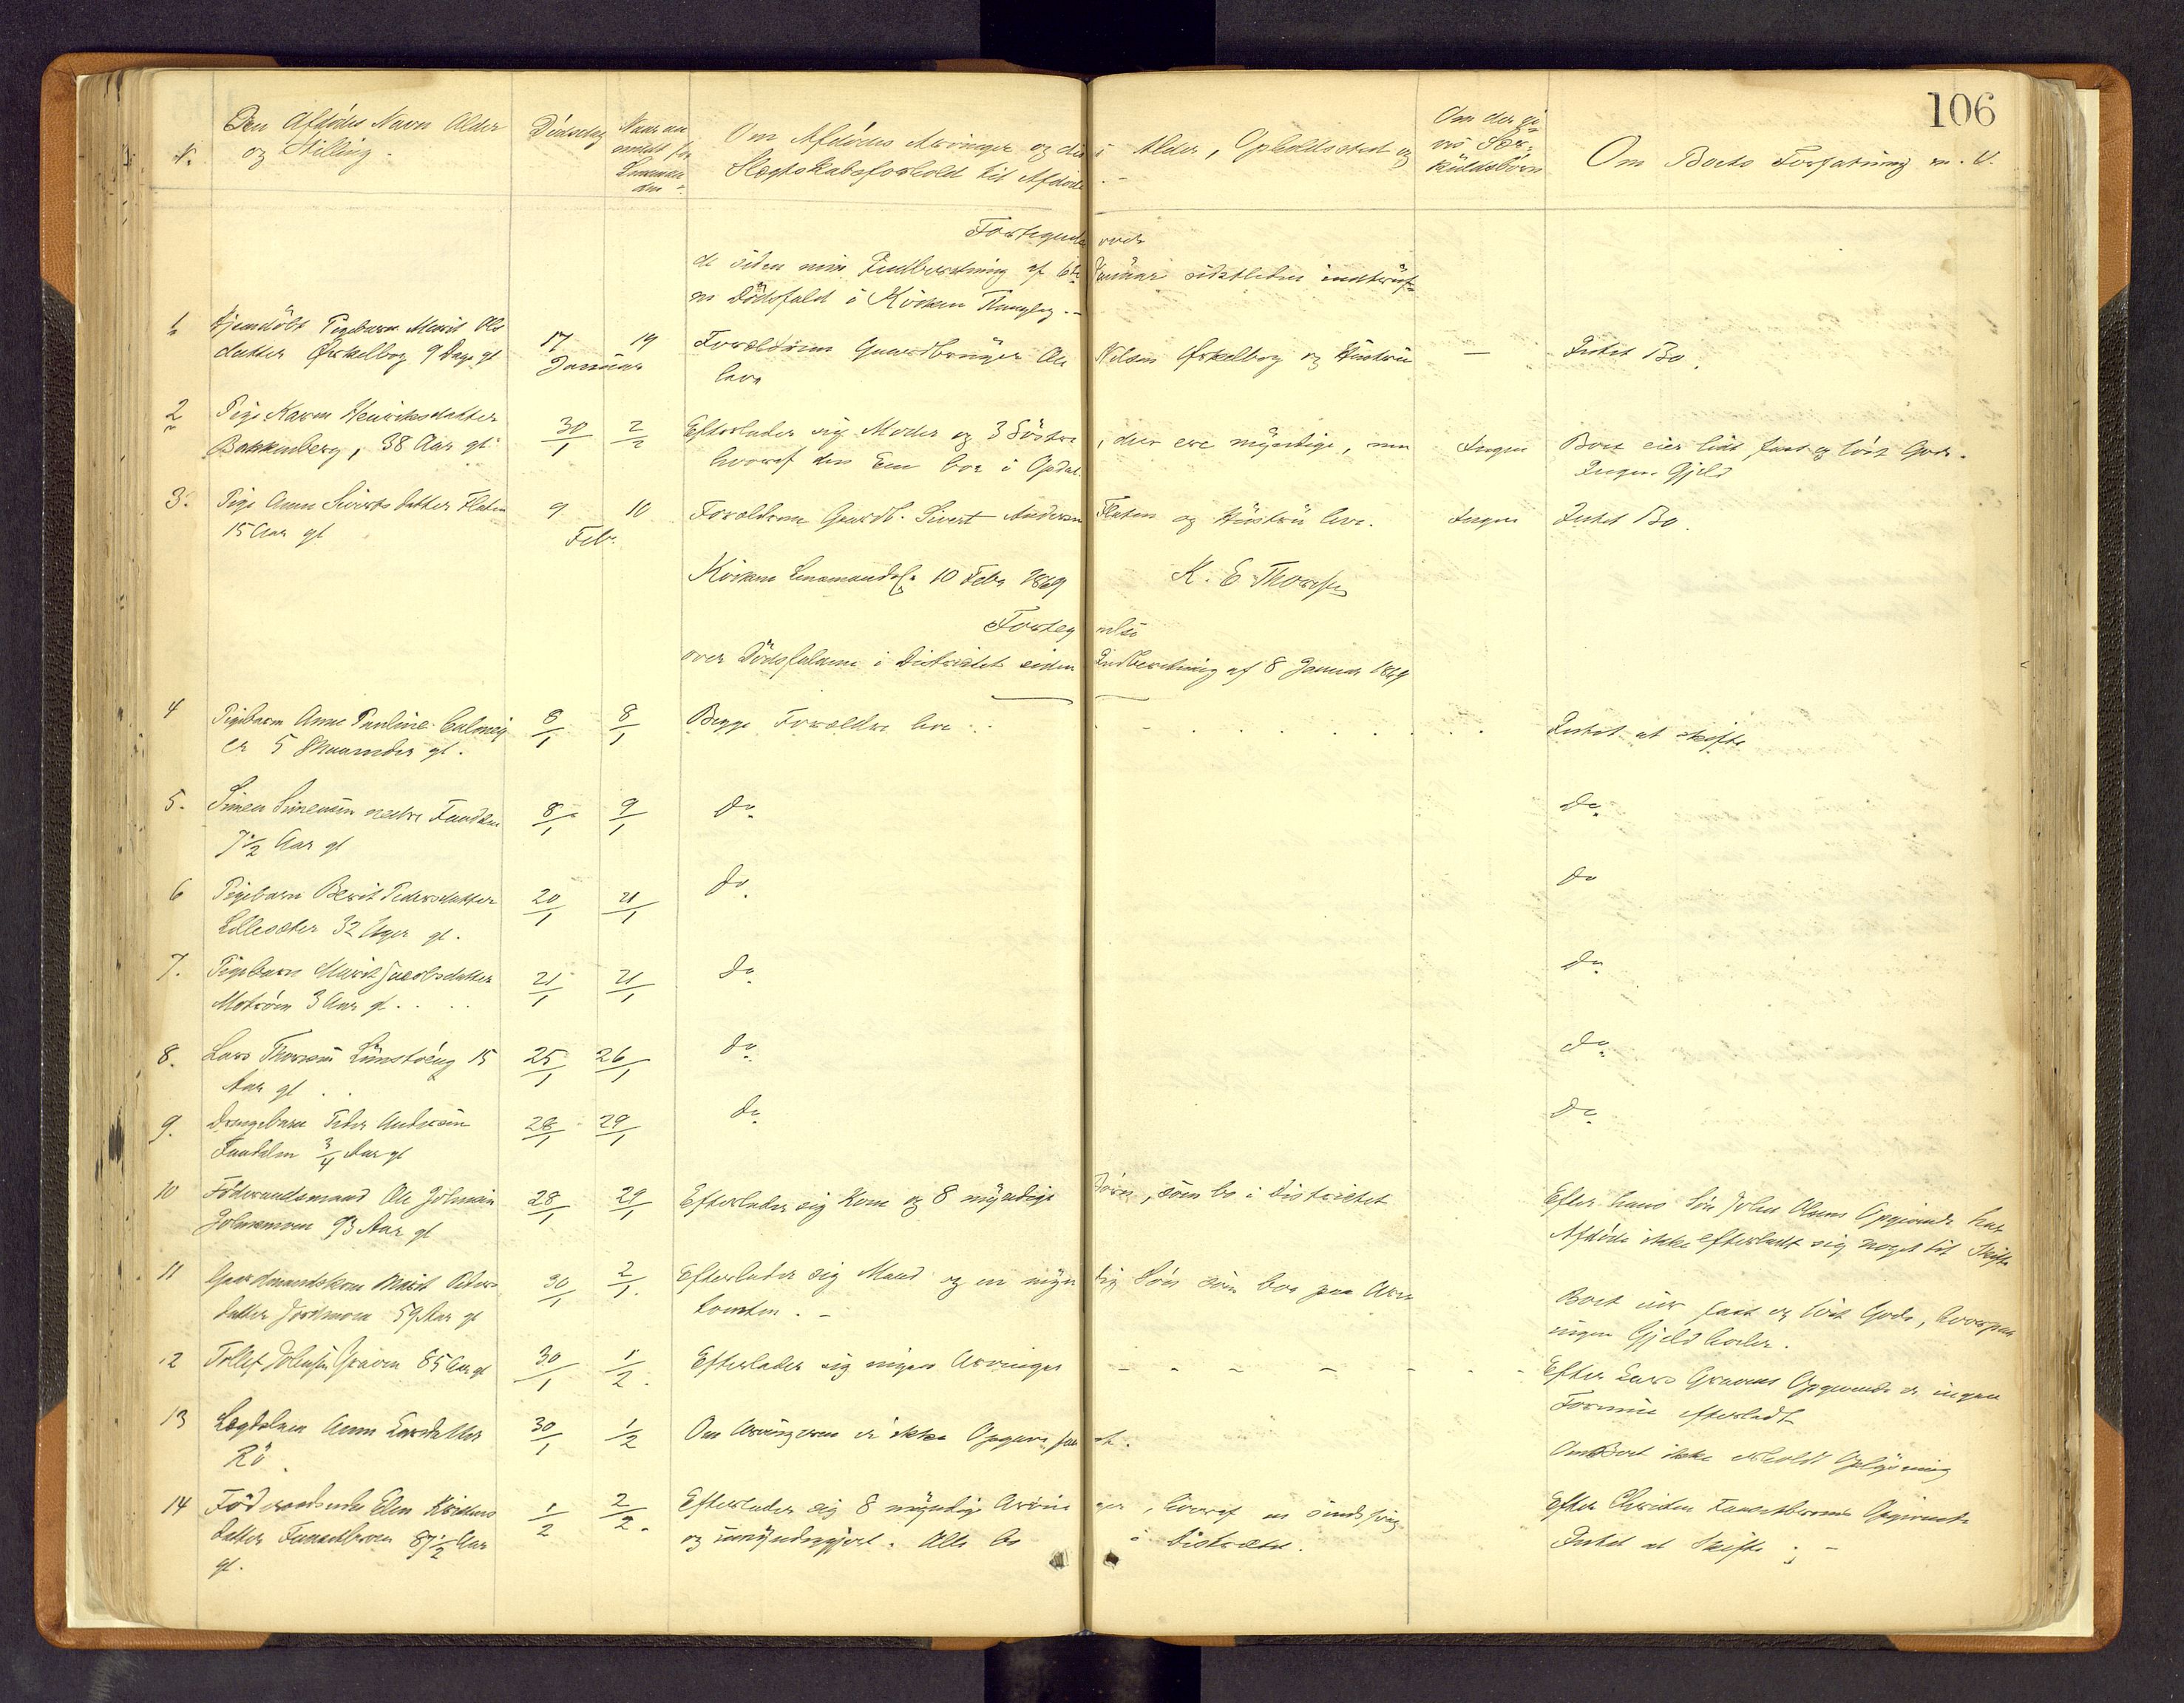 106
Den Afdødes Navn Alder
og Stilling.
N.
Dødsdag
Naar an
meldt for
Lensman
den
Om Afdødes Arvinger og disses Alder, Opholdssted og
Slægtskabsforhold til Afdøde.-
Om der gi
ves Sær-
kuldsbörn
Om Boets Forfatning m. V.
over
de siden min Indberetning af 6te Januar sidstleden indtruf-
ne Dödsfald i Kvikne Thinglag.-
1 Hjemdöbt Pigebarn Marit Ols
datter Ørkelbog 9 Dage gl 17 19 Forældrene Gaardbruger Ole Nilsen Ørkelbog og Hustru — Intet Bo.
Januar
leve
2 Pige Karen Henriksdatter
Bakkenberg, 38 Aar gl. 30/1 2/2 Efterlader sig Moder og 3 Söstre, der ere myndige, men Ingen Boet eier lidt fast og löst Gods.
hvoraf den Ene bor i Opdal. Ingen Gjeld
3. Pige Anne Siverts datter Flaten 9 10 Forældrene Gaardb. Sivert Andersen Flaten og Hustru leve. Ingen Intet Bo.
15 Aar gl Feb.
Kvikne Lensmandsf. 10 Febr 1869 K. E. Thoresen
Fortegnelse
over Dödsfaldene i Distriktet siden Indberetning af 8 Januar 1869
4 Pigebarn Anne Pauline
er 5 Maaneder gl. 8/1 8/1 Begge Forældre leve .. Intet at skifte
5. Simen Simensen nedre
7 1/2 Aar gl 8/1 9/1 do do
6 Pigebarn Berit Pedersdatter
Lillesæter 32 Uger gl. 20/1 21/1 do. do
7. Pigebarn Marit Jacobsdatter
3 Aar gl. 21/1 21/1 do do
8. Lars 15
Aar gl. 25/1 26/1 do do
9. Drengebarn Peder Andersen
3/4 Aar gl 28/1 29/1 do do
10 Föderaadsmand Ole Johnsen
93 Aar gl 28/1 29/1 Efterlader sig Kone og 8 myndige Börn, som bo i Distriktet Efter hans Sön John Olsens Opgivende har
Afdöde ikke efterladt sig noget til Skifte
11 Gaardmandskone Marit Peders
datter 59 Aar gl 30/1 2/1. Efterlader sig Mand og en myndig Sön som bor paa
Boet eier fast og löst Gods, hvorpaa
ingen Gjeld hviler.
12 Tollef 85 Aar gl 30/1 1/2. Efterlader sig ingen Arvinger - - - - Efter Lars Gravens Opgivende er ingen
Formue efterladt
13 Lægdslem Anne Larsdatter
Rö. 30/1 1/2 Om Arvingerne er ikke Opgave Om Boet ikke erholdt Oplysning
14 Föderaadsenke Elen
datter 87 1/2 Aar
gl. 1/2 2/2. Efterlader sig 8 myndige Arvinger, hvoraf en
og umyndiggjort. Alle bo i Distriktet. Efter Opgivende
Intet at Skifte ;-